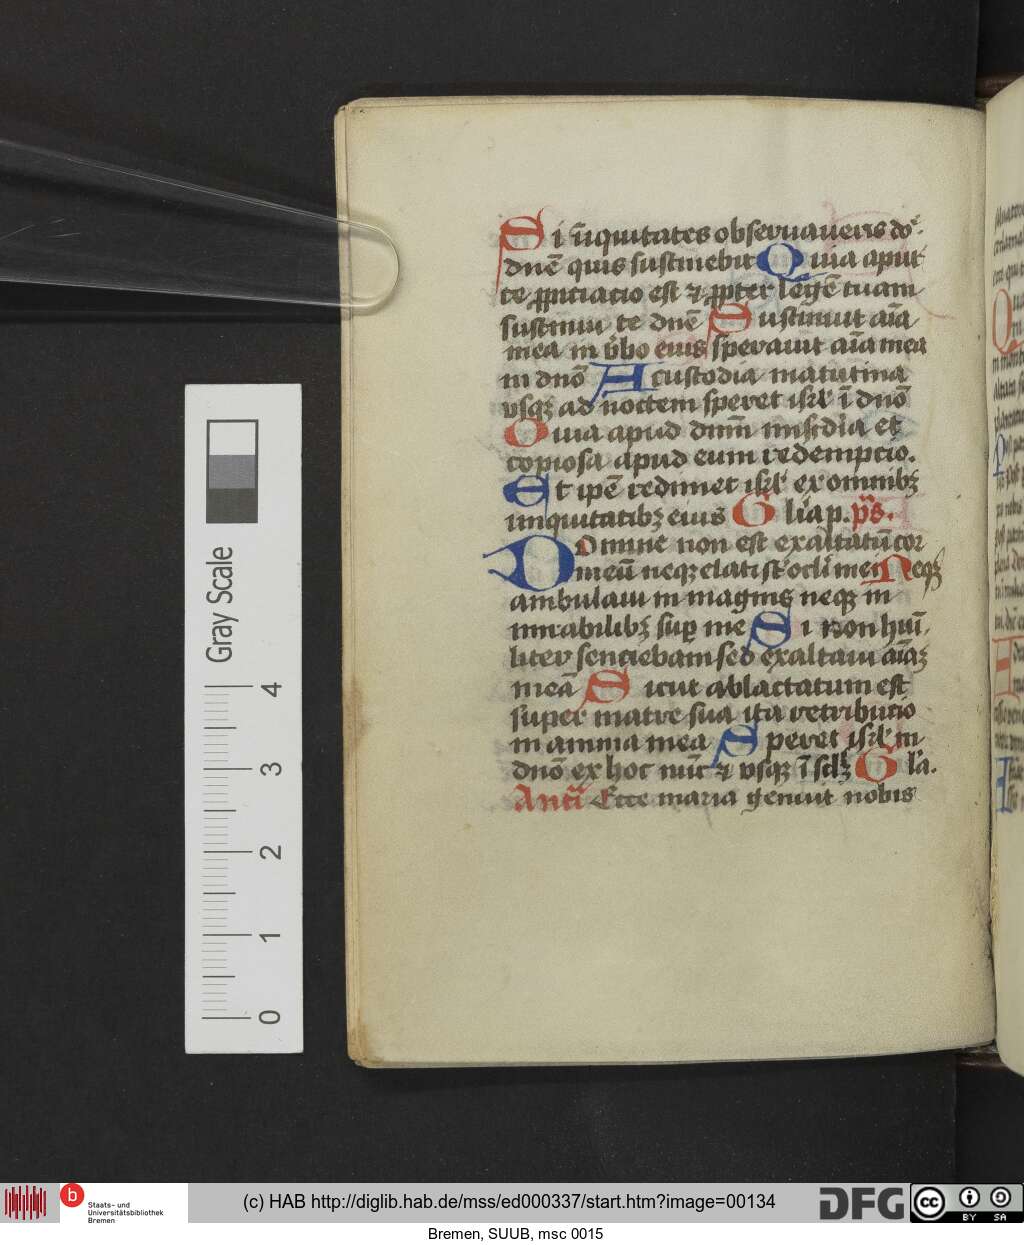 Si iniquitates obseruaueris do᷑
dn̄e quis sustinebit Quia aput
te ꝓpitiacio est ⁊ ꝓpter legē tuam
sustinui te dn̄e Sustinuit aīa
mea in v̓bo eius speravit aīa mea
in dnō A custodia matutina
vsqꝫ ad noctem speret isrl̓ ī dnō
Quia apud dnm̄ misc̄dia et
copiosa apud eum redempcio.
Et ipē redimet isrl̓ ex omnibꝫ
iniquitatibꝫ eius Gl̓ia p. p̄s.
Domine non est exaltatū cor
meū neqꝫ elati st̄ ocl̓i mei Neqꝫ
ambulaui in magnis neqꝫ in
mirabilibꝫ suꝑ me Si non huī-
liter senciebam sed exaltaui aīaꝫ
meā Sicut ablactatum est
super matre sua ita retributio
in anima mea Speret isrl̓ in
dnō ex hoc nūc ⁊ vsqꝫ ī scl̓ꝫ Gl̓a.
Antī Ecce maria genuit nobis
Gray Scale
4
3
2
1
0
b
Staats- und
Universitätsbibliothek
Bremen
(c) HAB http://diglib.hab.de/mss/ed000337/start.htm?image=00134
DFG
cc
BY SA
Bremen, SUUB, msc 0015